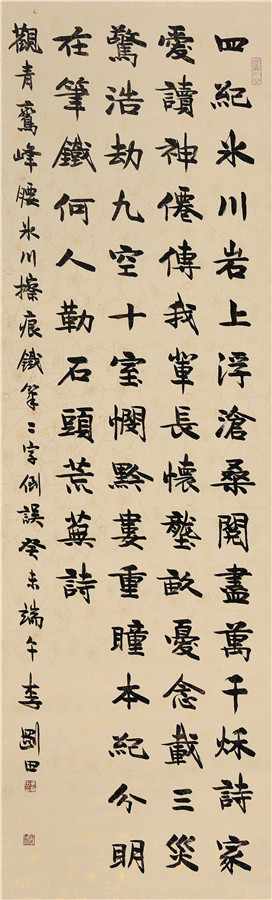 四紀氷川岩上浮滄桑閱盡萬千秌詩家
愛讀神僊傳我輩長懷壟畝憂念載三災
驚浩劫九空十室憫黔婁重瞳本紀分明
在筆鐵何人勒石頭荒蕪詩
觀青鸞峰腰氷川擦痕鐵筆二字倒誤癸未端午李剛田